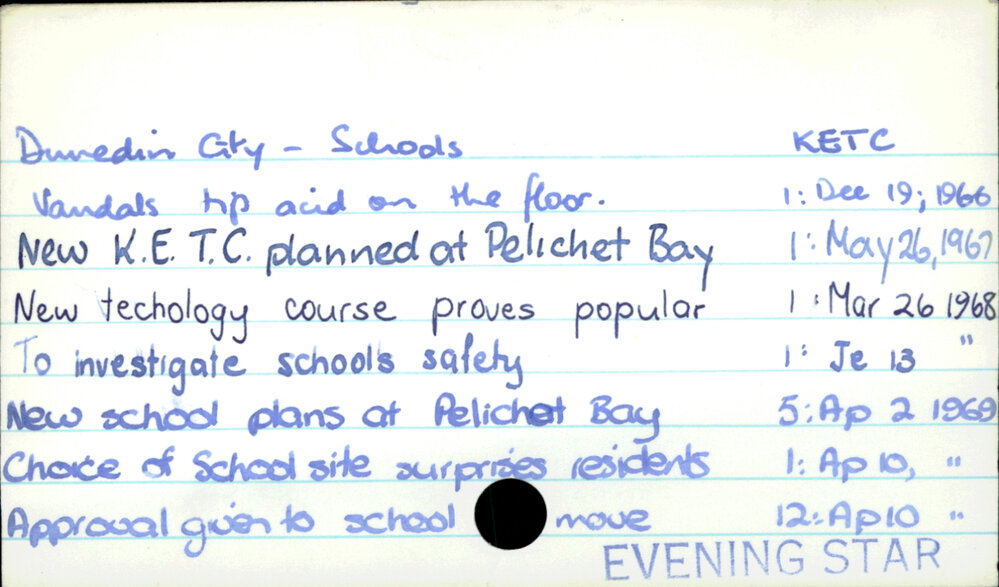 Dunedin City - Schools KETC
Vandals tip acid on the floor. 1: Dec 19; 1966
New K.E.T.C. planned at Pelichet Bay 1: May 26, 1967
New techology course proves popular 1: Mar 26 1968
To investigate schools safety 1: Je 13 "
New school plans at Pelichet Bay 5: Ap 2 1969
Choice of School site surprises residents 1: Ap 10, "
Approval given to school move 12: Ap 10 "
EVENING STAR